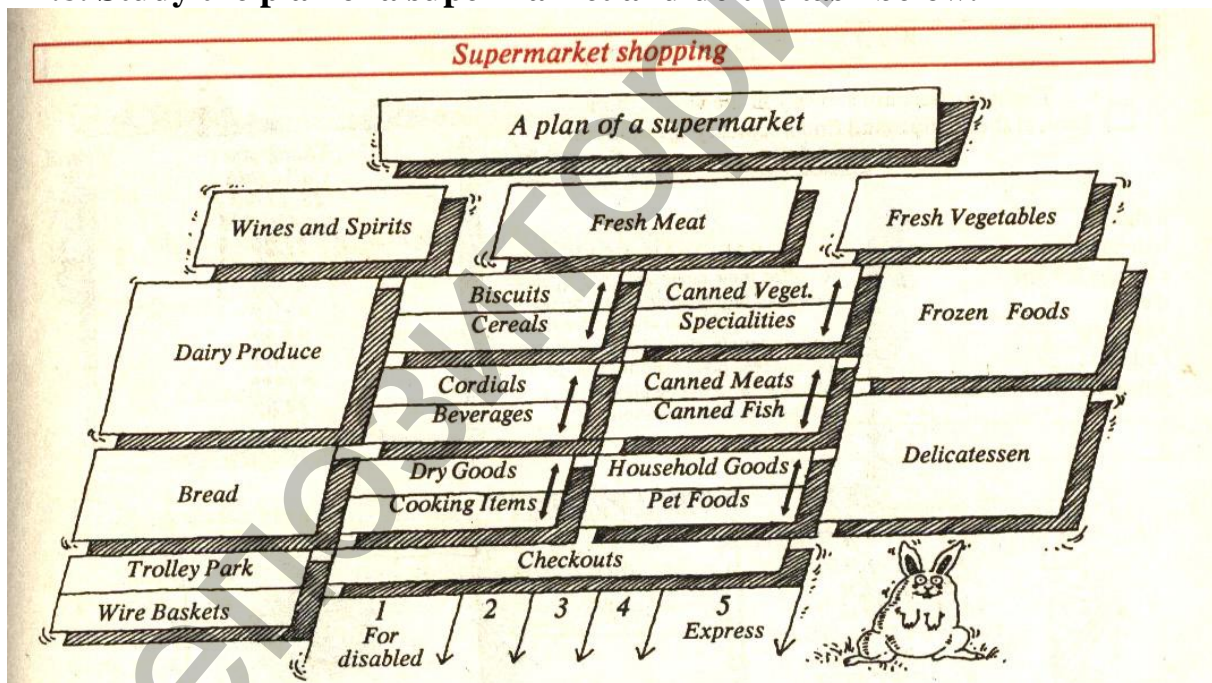 Supermarket shopping
A plan of a supermarket
Wines and Spirits
Fresh Meat
Fresh Vegetables
Dairy Produce
Biscuits
Cereals
Canned Veget.
Specialities
Frozen Foods
Cordials
Beverages
Canned Meats
Canned Fish
Bread
Dry Goods
Cooking Items
Household Goods
Pet Foods
Delicatessen
Trolley Park
Wire Baskets
Checkouts
1
For
disabled
2
3
4
5
Express